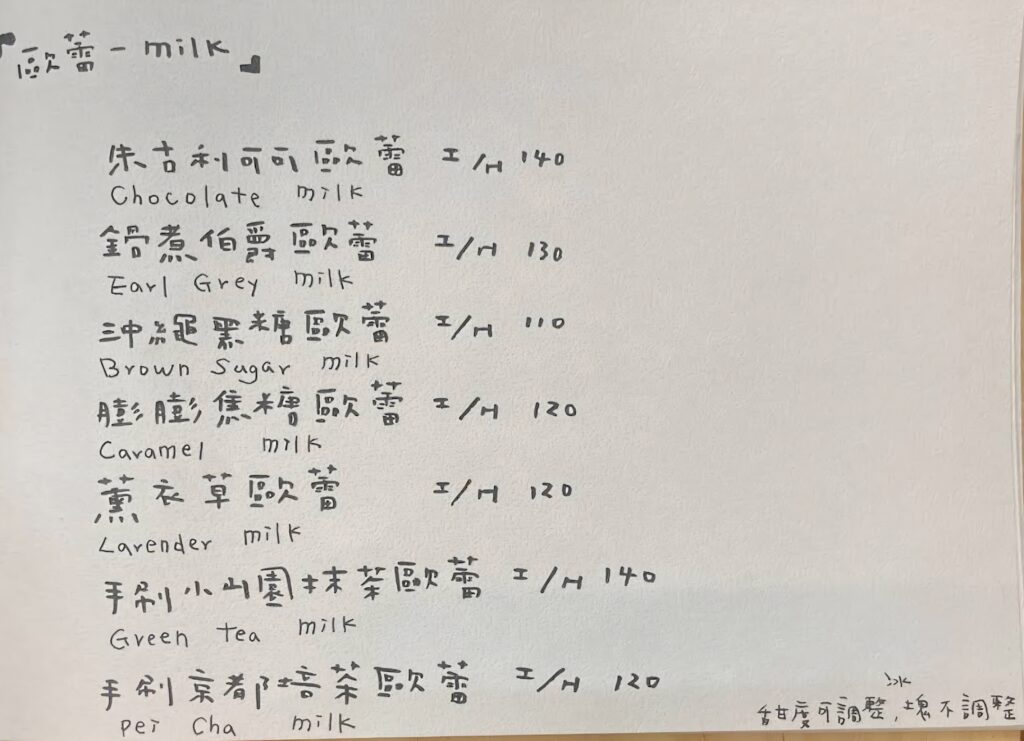 「歐蕾-milk」
朱古利可可歐蕾 I/H 140
Chocolate milk
鍋煮伯爵歐蕾 I/H 130
Earl Grey milk
沖繩黑糖歐蕾 I/H 110
Brown Sugar milk
膨膨焦糖歐蕾 I/H 120
Caramel milk
薰衣草歐蕾 I/H 120
Lavender milk
手刷小山園抹茶歐蕾 I/H 140
Green tea milk
手刷京都培茶歐蕾 I/H 120
Pei Cha milk
甜度可調整,冰塊不調整